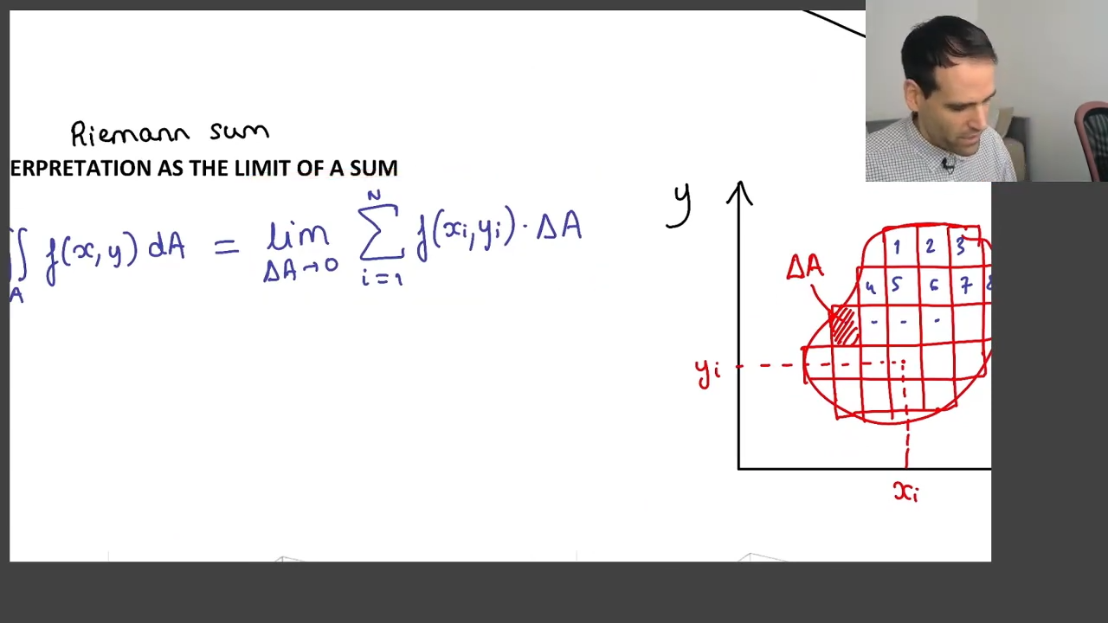 Riemann sum
ERPRETATION AS THE LIMIT OF A SUM
∬ f(x,y) dA = lim Σ f(xi,yi)·ΔA
A ΔA→0 i=1 N
y
ΔA
1 2 3
4 5 6 7 8
- - -
yi
xi